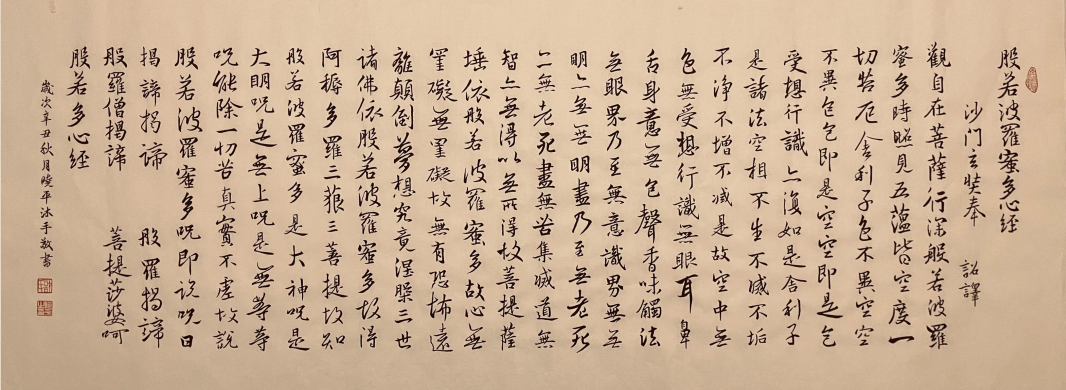 般若波羅蜜多心經
沙門玄奘奉 詔譯
觀自在菩薩行深般若波羅
蜜多時照見五蘊皆空度一
切苦厄舍利子色不異空空
不異色色即是空空即是色
受想行識亦復如是舍利子
是諸法空相不生不滅不垢
不淨不增不減是故空中無
色無受想行識無眼耳鼻
舌身意無色聲香味觸法
無眼界乃至無意識界無無
明亦無無明盡乃至無老死
亦無老死盡無苦集滅道無
智亦無得以無所得故菩提薩
埵依般若波羅蜜多故心無
罣礙無罣礙故無有恐怖遠
離顛倒夢想究竟涅槃三世
諸佛依般若波羅蜜多故得
阿耨多羅三藐三菩提故知
般若波羅蜜多是大神呪是
大明呪是無上呪是無等等
呪能除一切苦真實不虛故說
般若波羅蜜多呪即說呪曰
揭諦揭諦 般羅揭諦
般羅僧揭諦 菩提莎婆呵
般若多心經
歲次辛丑秋月曉平沐手敬書